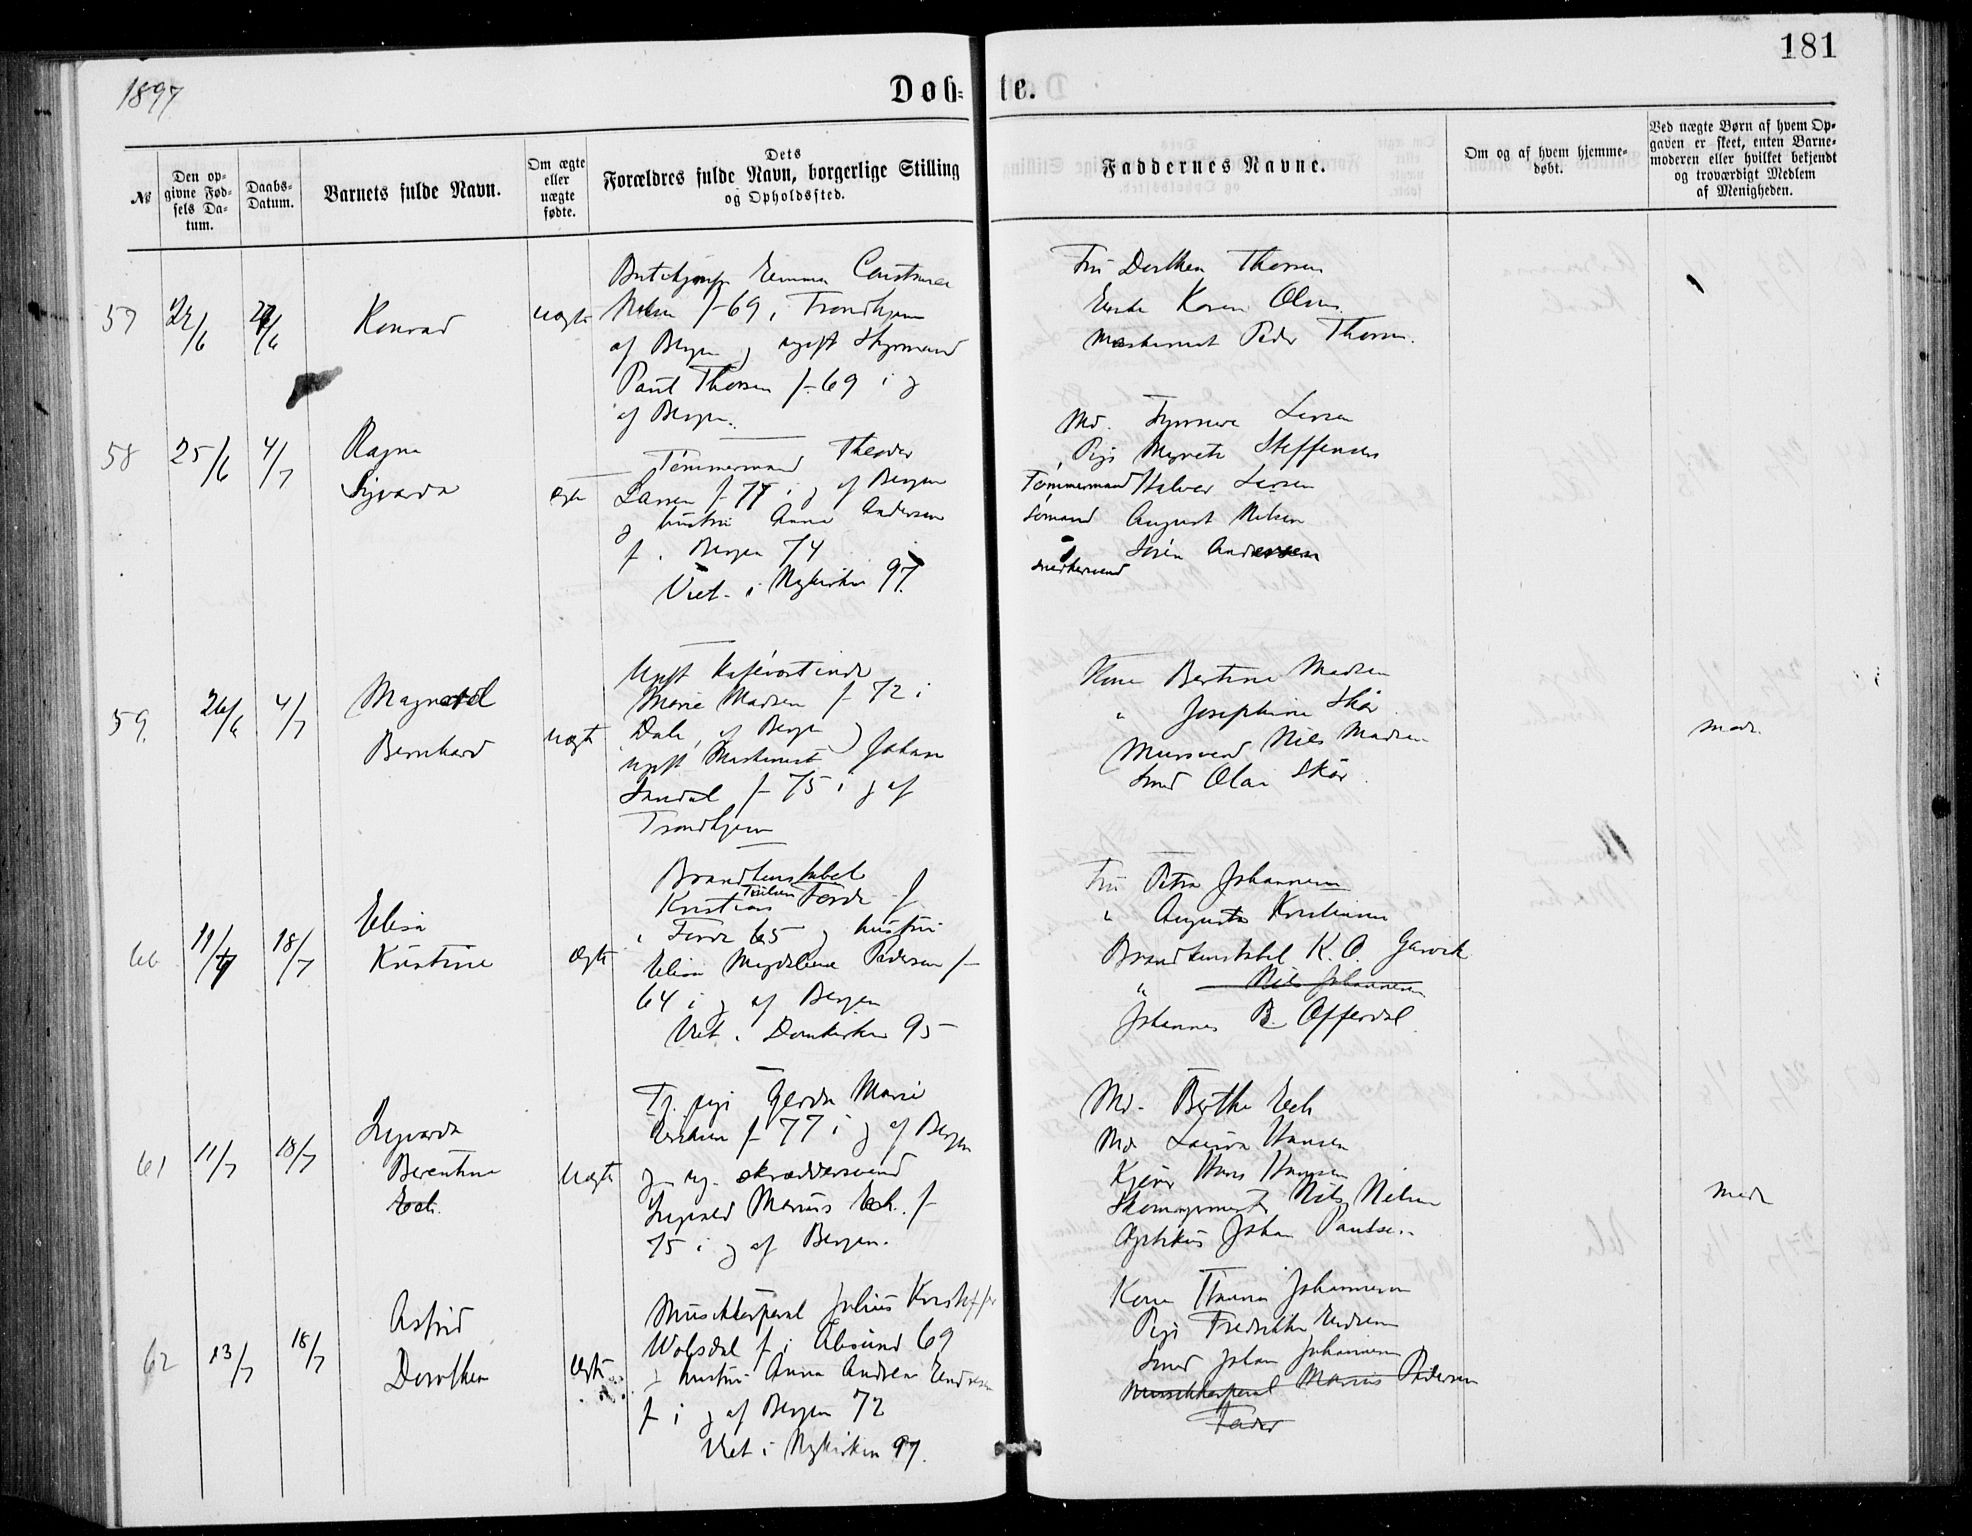 181
1897
Døb- te.
№
Den op-
givne Fød-
sels Da-
tum.
Daabs-
Datum.
Barnets fulde Navn.
Om ægte
eller
uægte
fødte.
Dets
Forældres fulde Navn, borgerlige Stilling
og Opholdssted.
Faddernes Navne.
Om og af hvem hjemme-
døbt.
Ved uægte Børn af hvem Op-
gaven er skeet, enten Barne-
moderen eller hvilket bekjendt
og troværdigt Medlem
af Menigheden.
57
22/6
Konrad
Uægte
Emma
f 69, Trondhjem
af Bergen og ugift Styrmand
Paul Thorsen f. 69 i og
af Bergen.
Fru Dorthea Thorsen
Enke Karen Olsen
Maskinist Peder Thorsen.
58
25/6
4/7
Ragna
Sigvarda
Ægte
Tømmermand Theodor
Larsen f 77 i og af Bergen
og hustru Anna Andersen
f. Bergen 74
Viet i Nykirken 97.
Md. Larsen
Pige Steffensen
Tømmermand Halvor Larsen
Sømand August Nilsen
Andersen
59.
26/6
4/7
Bernhard
Uægte
Ugift
Marie Madsen f 72 i
Dale, af Bergen
ugift Maskinist Johan
f 75 i og af
Trondhjem
Kone Bertine Madsen
" Josephine Skår
Mursvend Nils Madsen
Smed Olai Skår.
Mod.
60
11/7
18/7
Elisa
Kristine
Ægte
Brandkonstabel
Kristian Førde f
i Førde 65 og hustru
Elisa Magdalena Pedersen f
64 i og af Bergen
Viet i Domkirken 95
Fru Petra Johannesen
" Augusta Kristiansen
Brandkonstabel K. O. Garvik
" Nils Johannesen
Johannes B. Offerdal
61
11/7
18/7
Ingvarda
Berentine
Ech.
Uægte
Tj. pige Gerda Marie
f 77 i og af Bergen
og ug. skræddersvend
Ingvald Marius Ech. f
75 i og af Bergen.
Md. Berthe Ech
Md. Laura Hansen
Hans Hansen
Skomagermester Nils Nilsen
Optikus Johan Paulsen
Mod
62
13/7
18/7
Astrid
Dorothea
Ægte
Musikkorporal Julius Kristoffer
Wolsdal f i Ålesund 69
og hustru Anna Andrea Endresen
f i og af Bergen 72
Viet i Nykirken 97.
Kone Johannesen
Pige Fredrikke Endresen
Smed Johan Johannesen
Musikkorporal Marius Pedersen
Fader